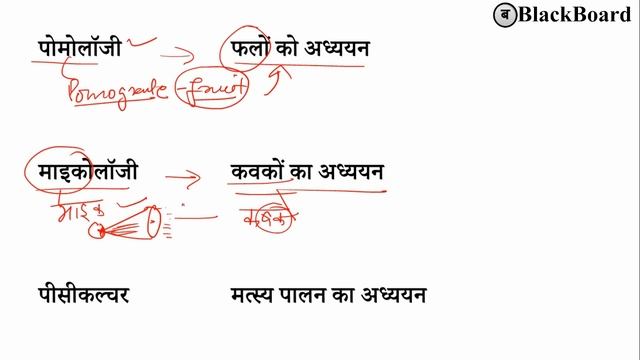 ब BlackBoard
पोमोलॉजी → फलों को अध्ययन
Pomogranate - fruit
माइकोलॉजी → कवकों का अध्ययन
माइक
पीसीकल्चर मत्स्य पालन का अध्ययन